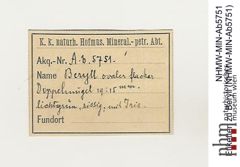 K. k. naturh. Hofmus. Mineral.-petr. Abt.
Akq.-Nr. A.b. 5751.
Name Beryll ovaler flacher
Doppelmugel 19:15 mm.
lichtgrün, rissig, mit Iris.
Fundort
NHMW-MIN-Ab5751
(NHMW-MIN-Ab5751)
nhm
museum wien